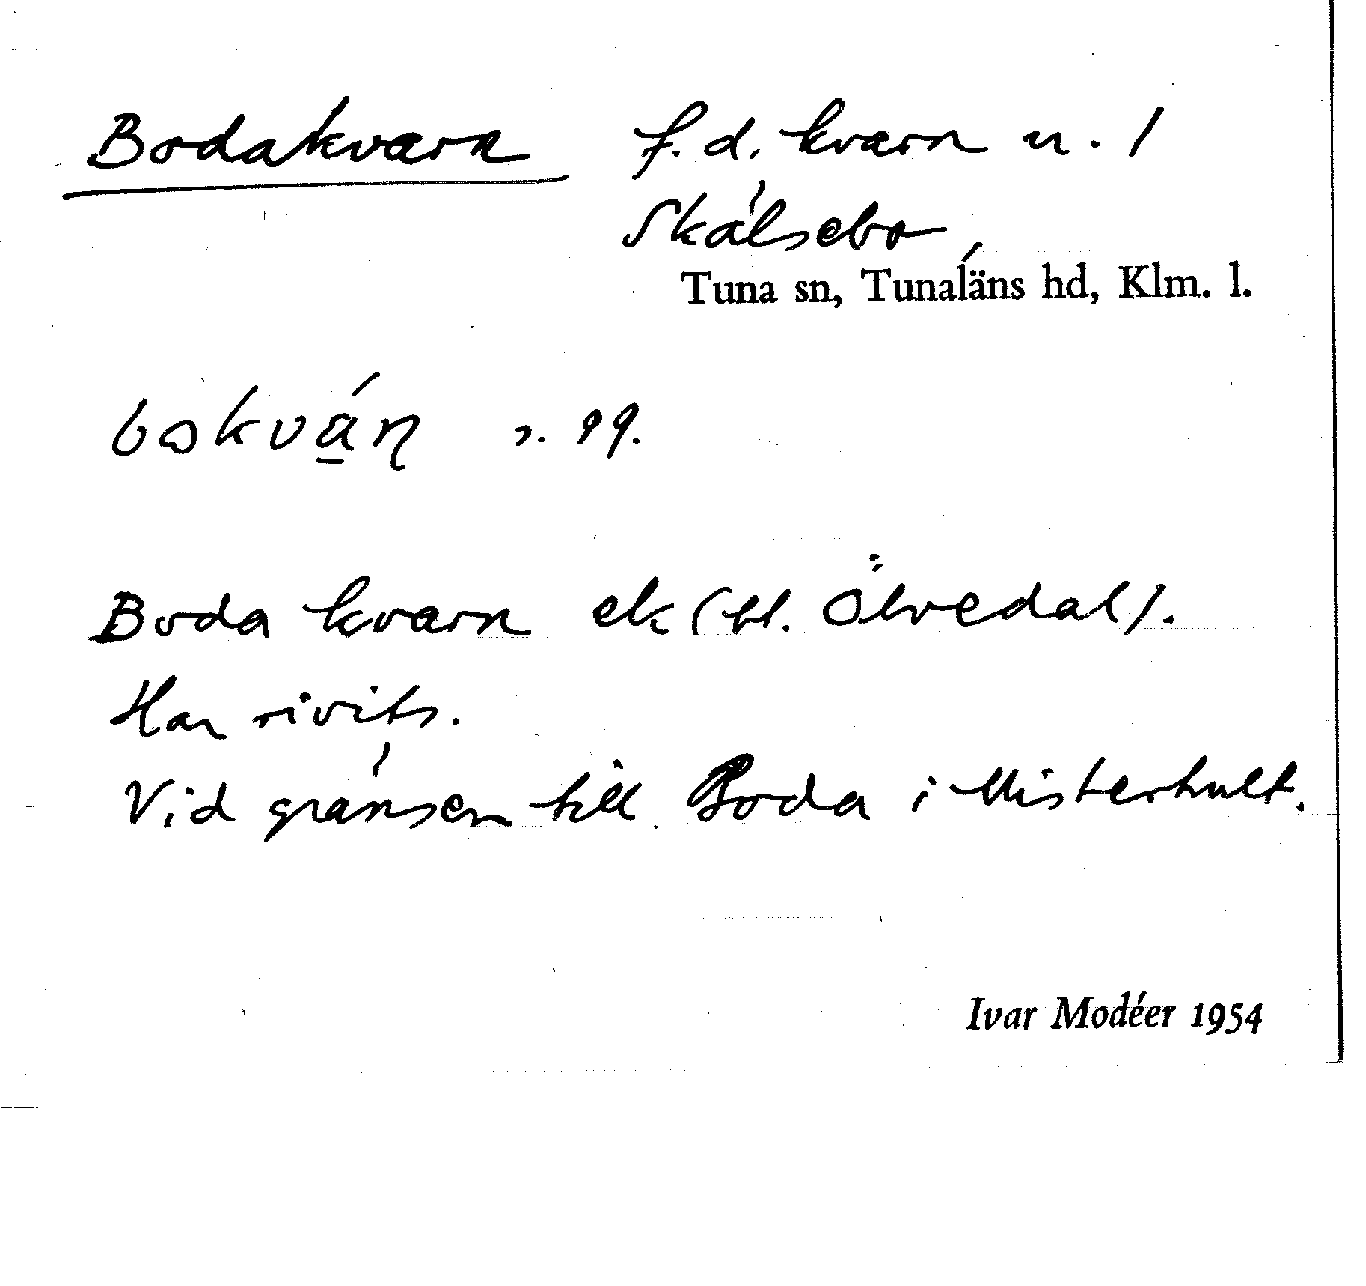 Bodakvarn f.d. kvarn u. /
Skälsebo,
Tuna sn, Tunaläns hd, Klm. l.
s. 99.
Boda kvarn ek (bl. Ölvedal).
Har rivits.
Vid gränsen till Boda i Misterhult.
Ivar Modéer 1954